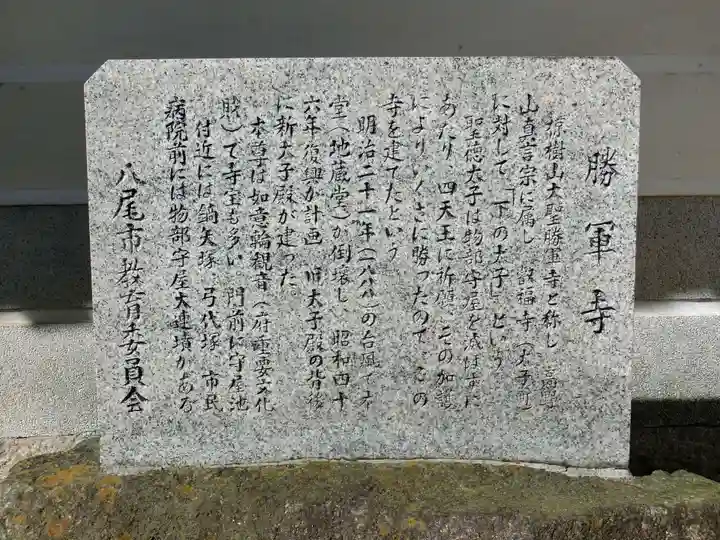 勝軍寺
椋樹山大聖勝軍寺と称し 高野
山真言宗に属し 叡福寺(太子町)
に対して「下の太子」という
聖徳太子は物部守屋を滅ぼすに
あたり 四天王に祈願、その加護
によりいくさに勝ったので、この
寺を建てたという
明治二十一年(一八八八)の台風で本
堂(地蔵堂)が倒壊し、昭和四十
六年復興が計画 旧太子殿の背後
に新太子殿が建った。
本尊は如意輪観音(府重要文化
財)で寺宝も多い 門前に守屋池
付近には鏑矢塚、弓代塚、市民
病院前には物部守屋大連墳がある
八尾市教育委員会